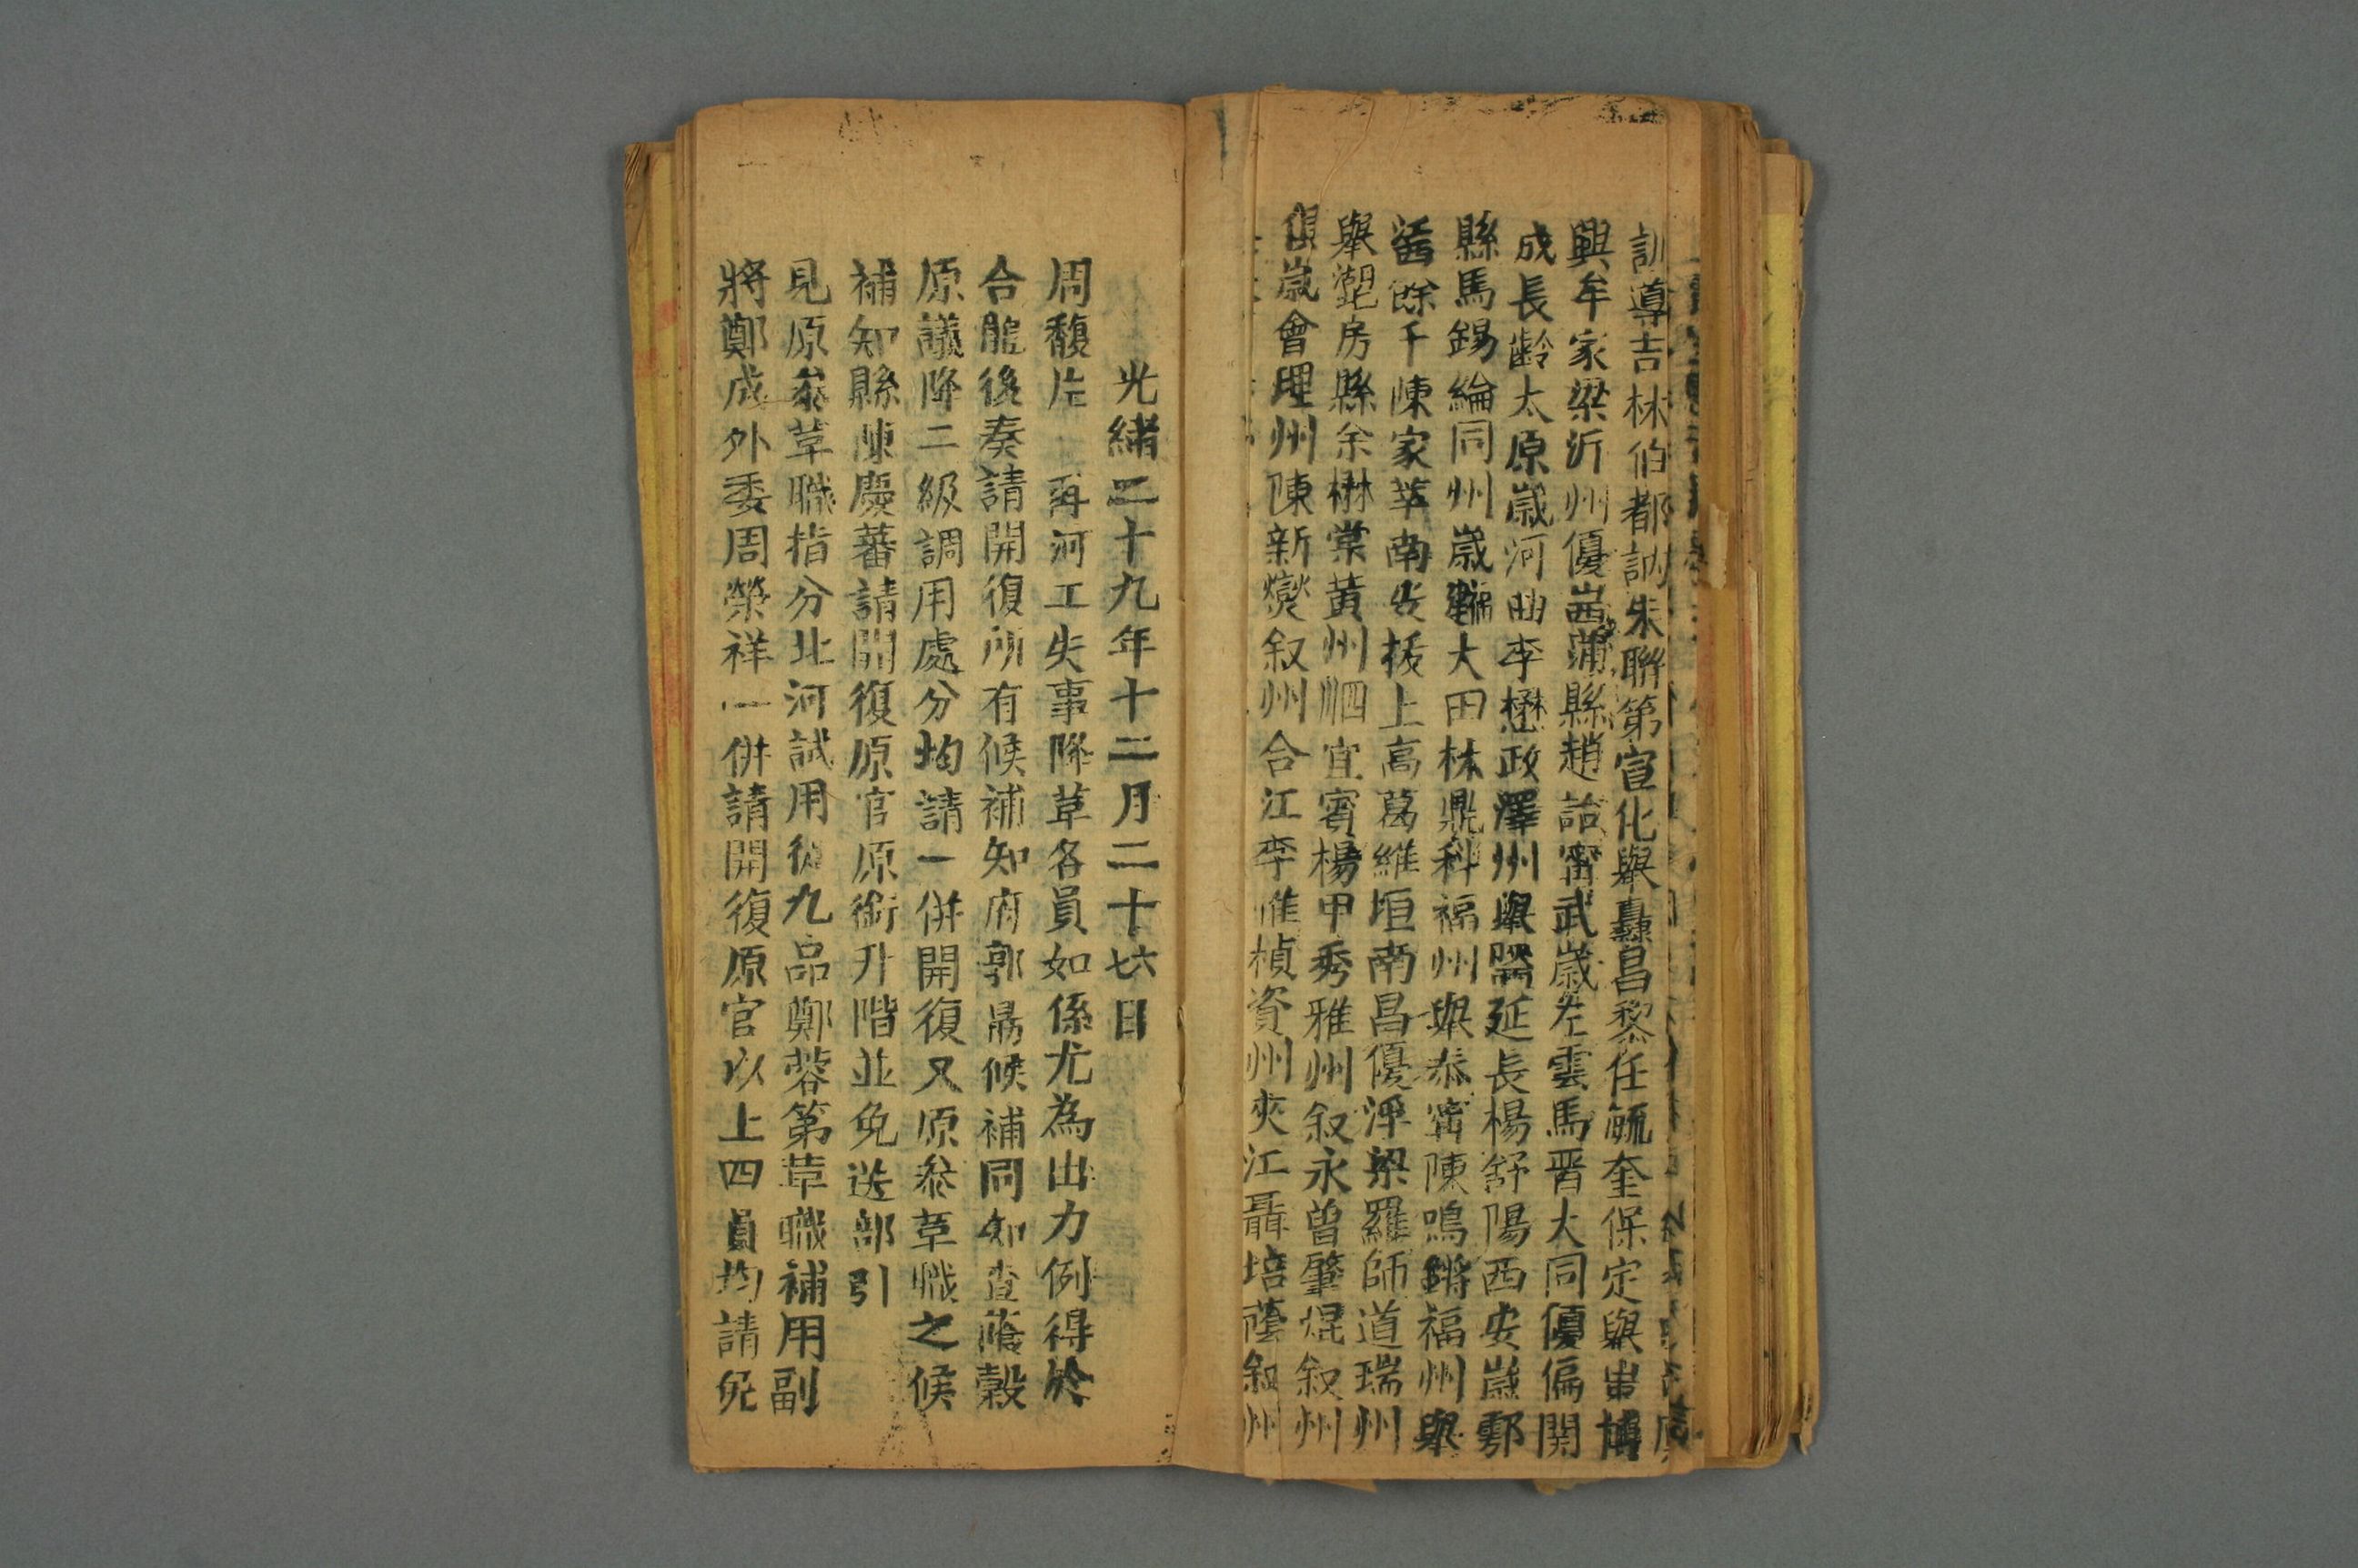 訓導吉林伯都訥朱聯第宣化舉 昌黎任毓奎保定舉 博
興牟家梁沂州優 蒲縣趙詒甯武歲左雲馬晋大同優偏關
成長齡太原歲河曲李懋政澤州舉 延長楊舒陽西安歲鄠
縣馬錫綸同州歲 大田林鼎科福州舉泰甯陳鳴鏘福州舉
餘千陳家莘南 拔上高葛維垣南昌優浮梁羅師道瑞州
舉 房縣余楙棠黃州 宜甯楊甲秀雅州叙永曾肇焜叙州
俱歲會理州陳新爕叙州合江李惟楨資州夾江聶培蔭叙州
光緒二十九年十二月二十六七日
周馥片 再河工失事降革各員如係尤為出力例得於
合龍後奏請開復所有候補知府郭 候補同知查蔭穀
原議降二級調用處分均請一併開復又原叅革職之候
補知縣陳慶蕃請開復原官原銜升階並免送部引
見原叅革職指分北河試用從九品鄭蓉第革職補用副
將鄭成外委周榮祥一併請開復原官以上四員均請免